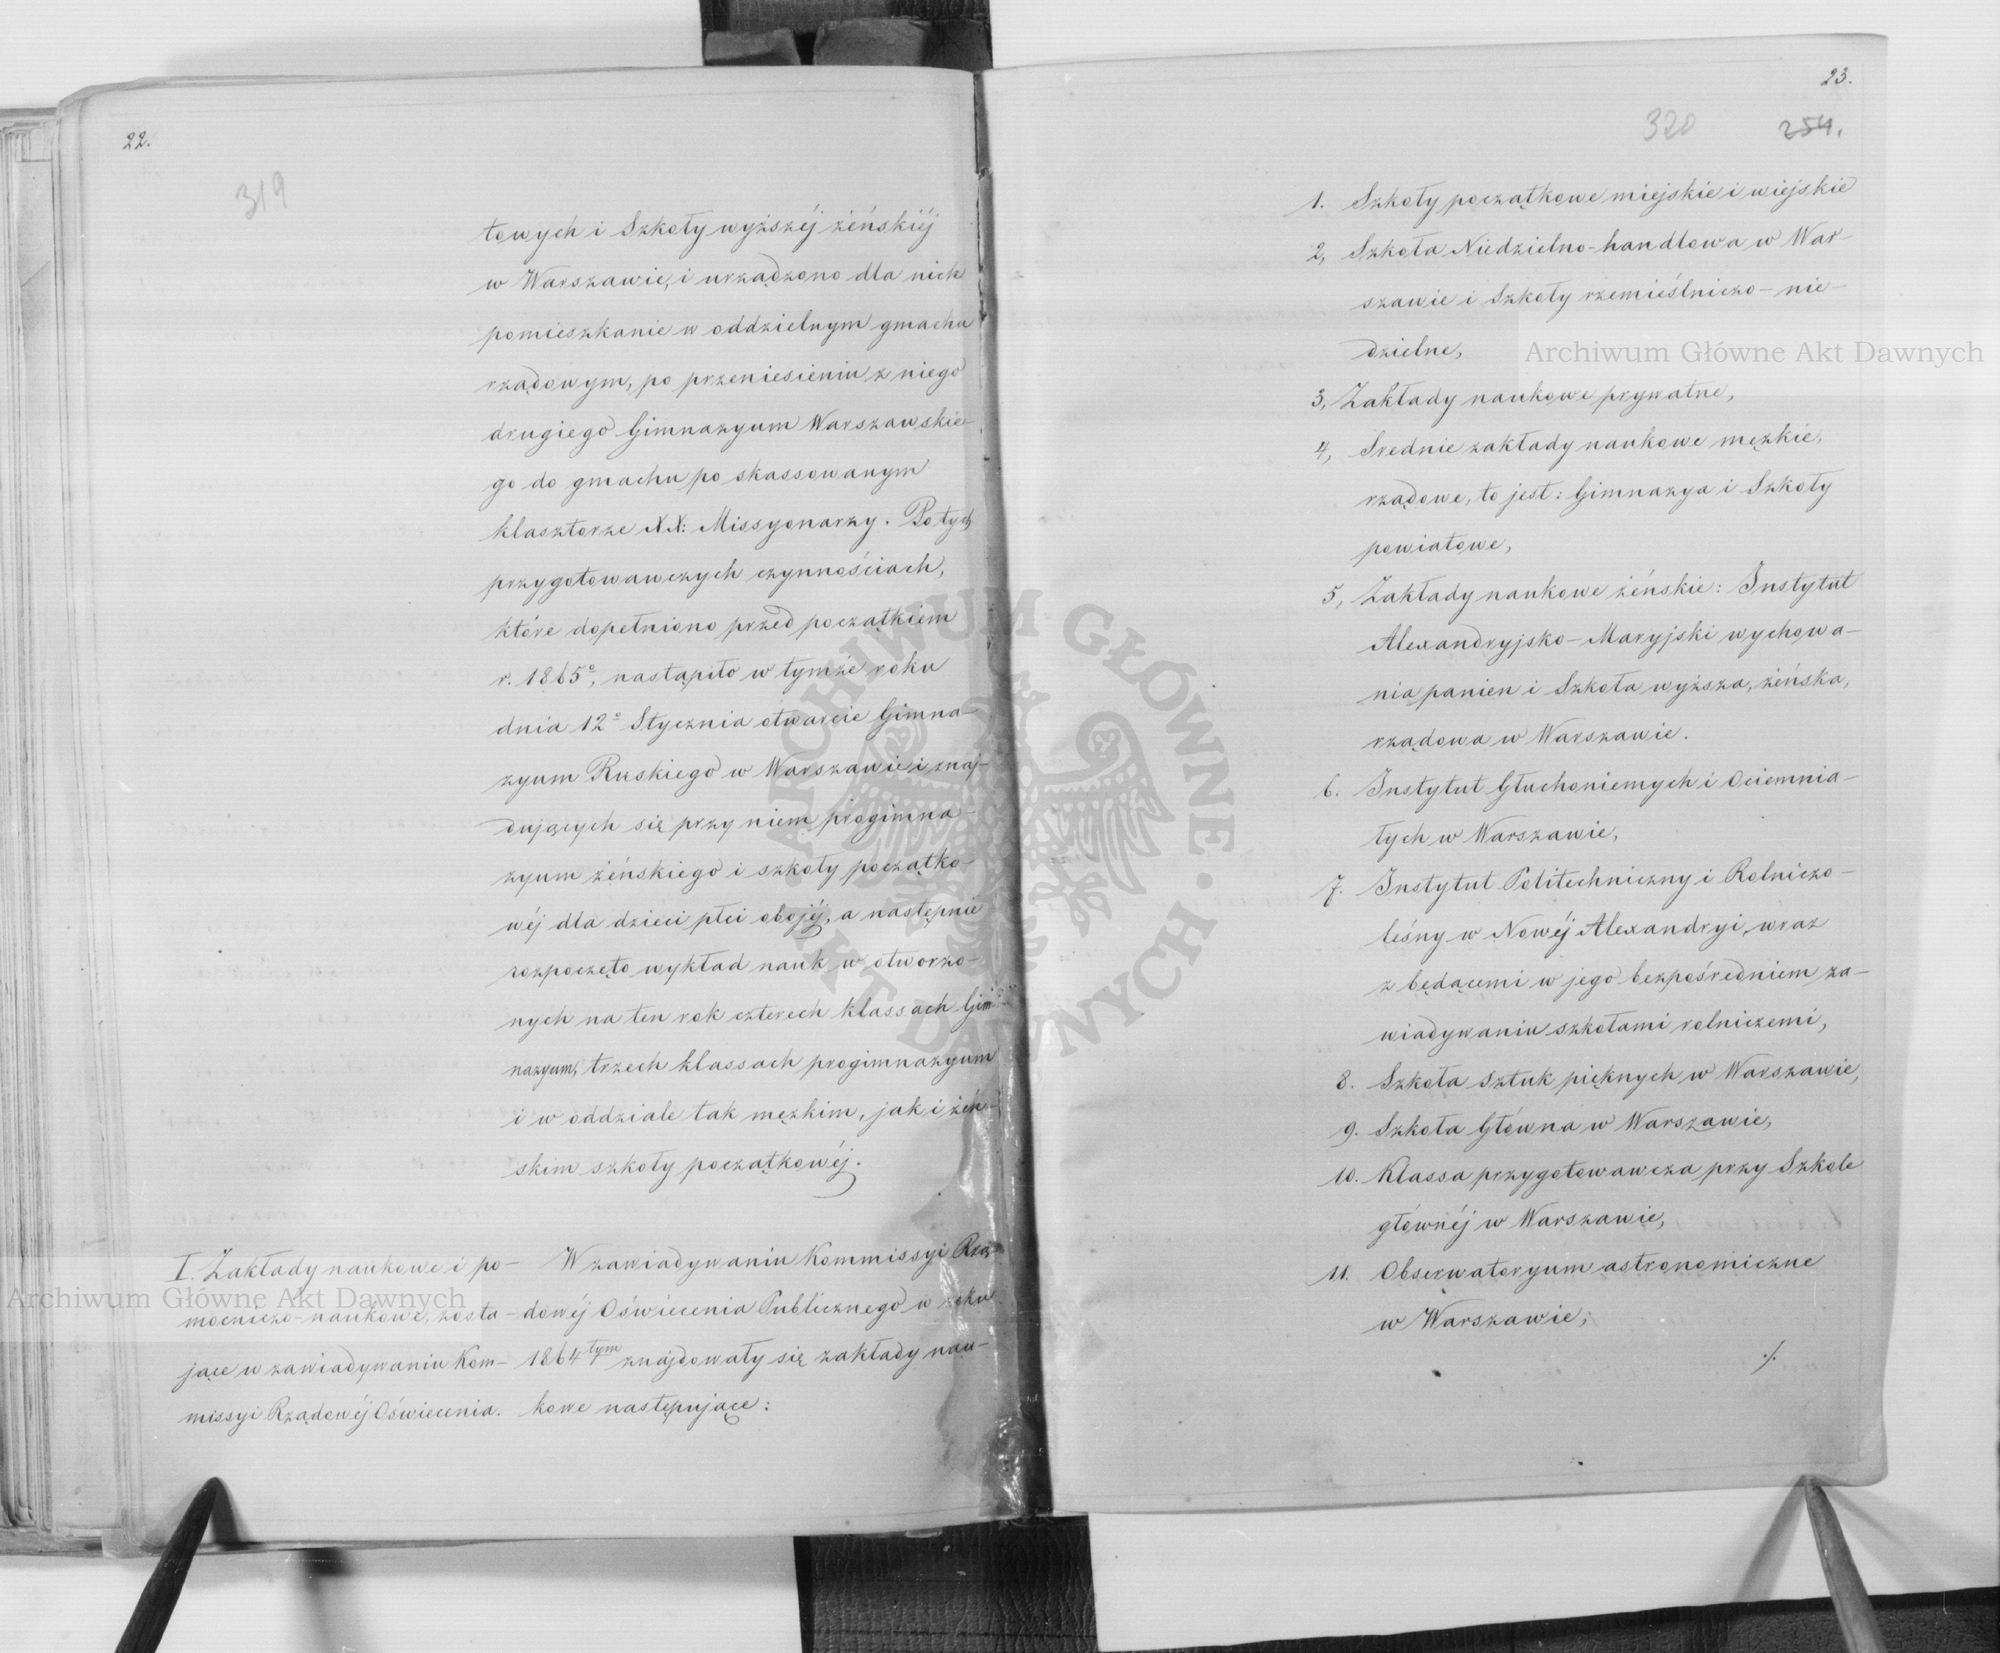 22.
319
towych i Szkoły wyższéj żéńskiéj
w Warszawie, i urządzono dla nich
pomieszkanie w oddzielnym gmachu
rządowym, po przeniesieniu z niego
drugiego Gimnazyum Warszawskie-
go do gmachu po skassowanym
klasztorze XX: Missyonarzy. Po tych
przygotowawczych czynnościach,
które dopełniono przed początkiem
r. 1865º, nastąpiło w tymże roku
dnia 12º Stycznia otwarcie Gimna-
zyum Ruskiego w Warszawie i znaj-
dujących się przy niem progimna-
zyum żéńskiego i szkoły początko-
wéj dla dzieci płci obojéj, a następnie
rozpoczęto wykład nauk w otworzo-
nych na ten rok czterech klassach Gim-
nazyum, trzech klassach progimnazyum
i w oddziale tak męzkim, jak i żéń-
skim szkoły początkowéj.
I. Zakłady naukowe i po-
mocniczo-naukowe, zosta-
jące w zawiadywaniu Kom-
missyi Rządowéj Oświecenia.
W zawiadywaniu Kommissyi Rzą-
dowéj Oświecenia Publicznego w roku
1864tym znajdowały się zakłady nau-
kowe następujące:
23.
320 254.
1. Szkoły początkowe miejskie i wiejskie
2, Szkoła Niedzielno-handlowa w War-
szawie i Szkoły rzemieślniczo-nie-
dzielne,
3, Zakłady naukowe prywatne,
4, Srednie zakłady naukowe męzkie,
rządowe, to jest: Gimnazya i Szkoły
powiatowe,
5, Zakłady naukowe żéńskie: Instytut
Alexandryjsko-Maryjski wychowa-
nia panien i Szkoła wyższa, żéńska,
rządowa w Warszawie.
6. Instytut Głuchoniemych i Ociemnia-
łych w Warszawie,
7. Instytut Politechniczny i Rolniczo-
leśny w Nowéj Alexandryi, wraz
z będącemi w jego bezpośredniem za-
wiadywaniu szkołami rolniczemi,
8. Szkoła sztuk pięknych w Warszawie,
9. Szkoła Główna w Warszawie,
10. Klassa przygotowawcza przy Szkole
głównéj w Warszawie,
11. Obserwatoryum astronomiczne
w Warszawie;
./.
Archiwum Główne Akt Dawnych
Archiwum Główne Akt Dawnych
ARCHIWUM GŁÓWNE · AKT DAWNYCH ·